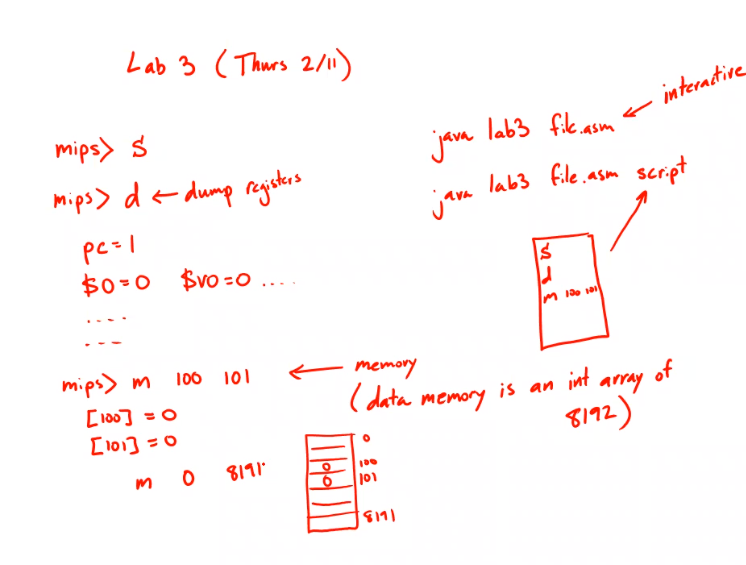 Lab 3 (Thurs 2/11)
mips> s
mips> d ← dump registers
pc=1
$0=0 $v0=0 ....
....
---
mips> m 100 101 ← memory
(data memory is an int array of
8192)
[100] = 0
[101] = 0
m 0 8191
0
0 100
0 101
8191
java lab3 file.asm ← interactive
java lab3 file.asm script
s
d
m 100 101